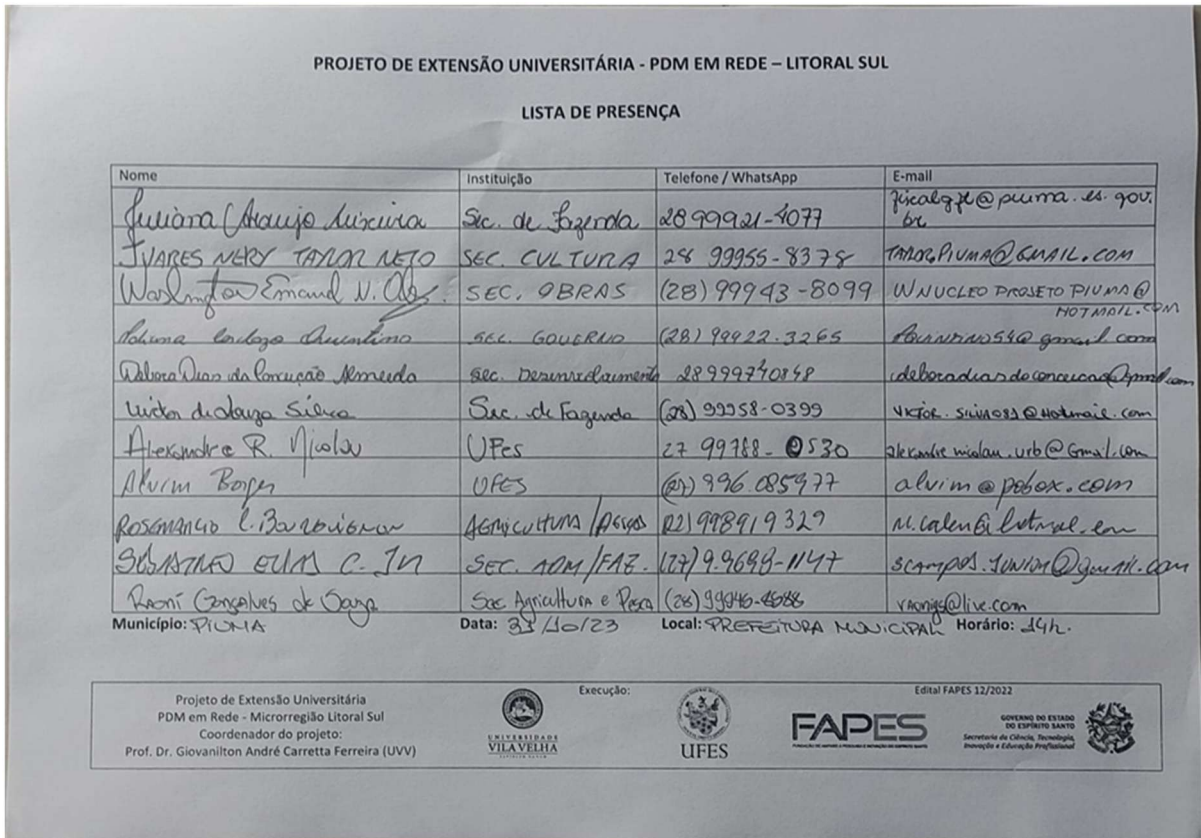 PROJETO DE EXTENSÃO UNIVERSITÁRIA - PDM EM REDE – LITORAL SUL
LISTA DE PRESENÇA
Nome Instituição Telefone / WhatsApp E-mail
Juliana Araujo Sec. de Fazenda 28 99921-4077 @piuma.es.gov.br
JUARES NERY TAYLOR NETO SEC. CULTURA 28 99955-8378 TAYLOR.PIUMA@GMAIL.COM
Washington Emanuel N. SEC. OBRAS (28) 99943-8099 WNUCLEO PROJETO PIUMA@
HOTMAIL.COM
Quintino SEC. GOVERNO (28) 99922.3265 @gmail.com
Debora Dias da Conceição Almeida Sec. Desenvolvimento 28 999740848 deboradiasdaconceicao@gmail.com
Victor de Souza Silva Sec. de Fazenda (28) 99958-0399 VICTOR.SILVA081@Hotmail.com
Alexandre R. Nicolau UFes 27 99788-0530 alexandre nicolau.urb@Gmail.com
Alvim Borges UFES (27) 996.085977 alvim@pobox.com
AGRICULTURA (22) 998919329
SEBASTIÃO ELIAS C. JR SEC. ADM/FAZ. (27) 9.9698-1147 SCAMPOS.JUNIOR@gmail.com
Raoni Gonçalves de Souza Sec Agricultura e Pesca (28) raonigs@live.com
Município: PIUMA Data: 31/10/23 Local: PREFEITURA MUNICIPAL Horário: 14h.
Projeto de Extensão Universitária
PDM em Rede - Microrregião Litoral Sul
Coordenador do projeto:
Prof. Dr. Giovanilton André Carretta Ferreira (UVV)
Execução:
UNIVERSIDADE
VILA VELHA
UFES
Edital FAPES 12/2022
FAPES
GOVERNO DO ESTADO
DO ESPÍRITO SANTO
Secretaria da Ciência, Tecnologia,
Inovação e Educação Profissional